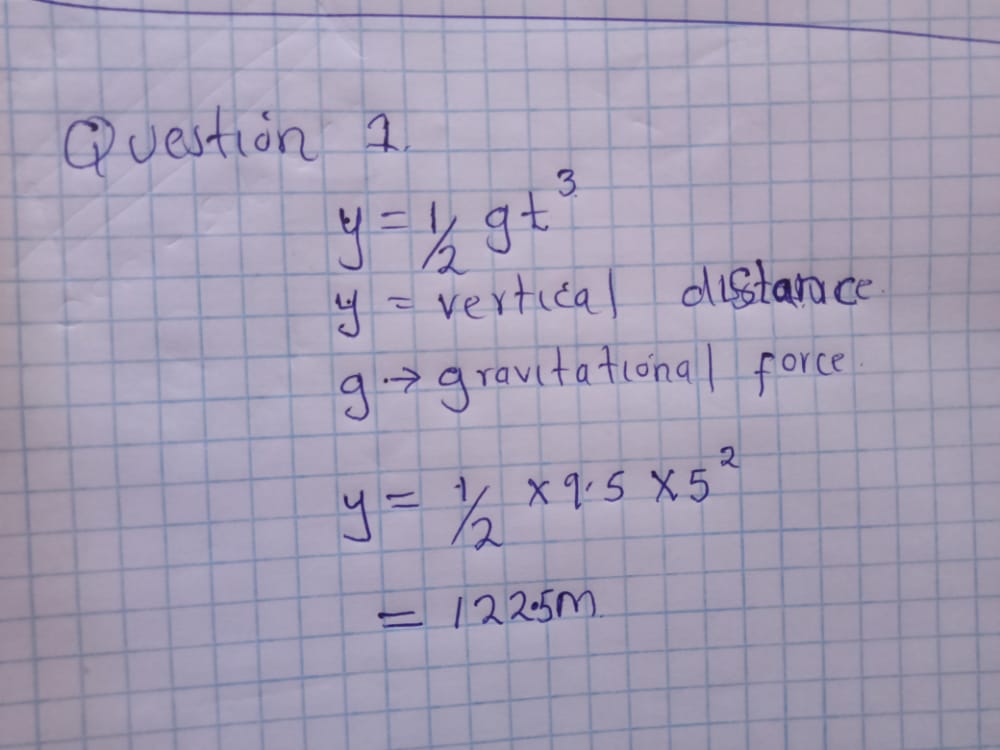 Question 1.
y = 1/2 gt³
y = vertical distance.
g → gravitational force.
y = 1/2 × 9.5 × 5²
= 122.5m